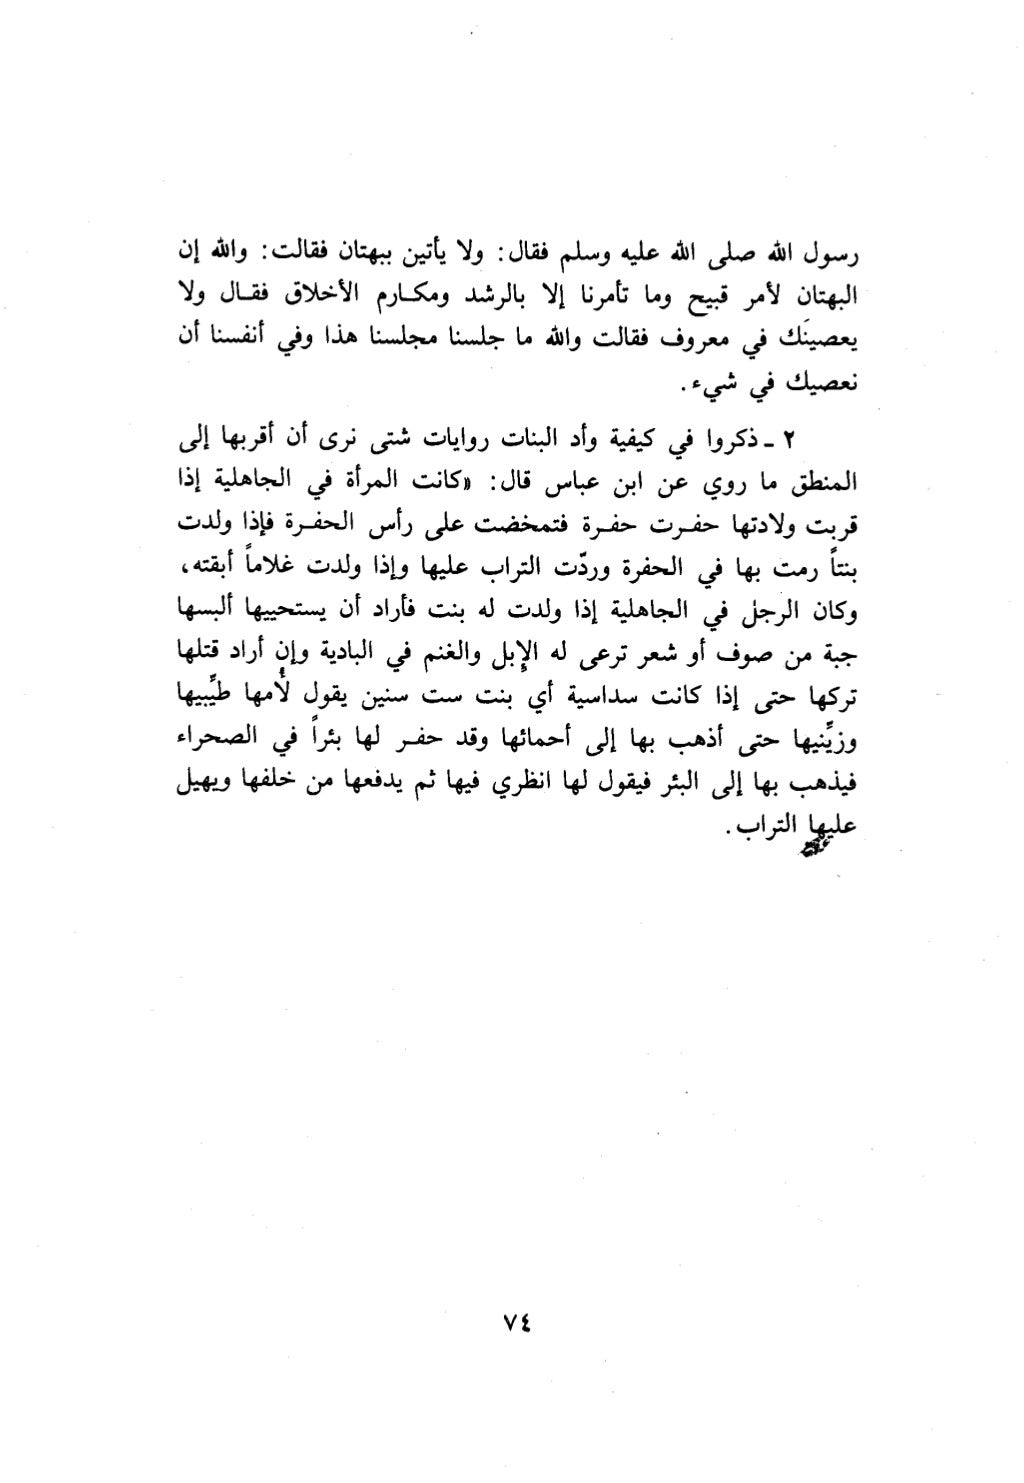 رسول الله صلى الله عليه وسلم فقال: ولا يأتين ببهتان فقالت: والله إن
البهتان لأمر قبيح وما تأمرنا إلا بالرشد ومكارم الأخلاق فقال ولا
يعصينَك في معروف فقالت والله ما جلسنا مجلسنا هذا وفي أنفسنا أن
نعصيك في شيء.
٢ - ذكروا في كيفية وأد البنات روايات شتى نرى أن أقربها إلى
المنطق ما روي عن ابن عباس قال: «كانت المرأة في الجاهلية إذا
قربت ولادتها حفرت حفرة فتمخضت على رأس الحفرة فإذا ولدت
بنتاً رمت بها في الحفرة وردّت التراب عليها وإذا ولدت غلاماً أبقته،
وكان الرجل في الجاهلية إذا ولدت له بنت فأراد أن يستحييها ألبسها
جبة من صوف أو شعر ترعى له الإبل والغنم في البادية وإن أراد قتلها
تركها حتى إذا كانت سداسية أي بنت ست سنين يقول لأُمها طيِّبيها
وزيِّنيها حتى أذهب بها إلى أحمائها وقد حفر لها بئراً في الصحراء
فيذهب بها إلى البئر فيقول لها انظري فيها ثم يدفعها من خلفها ويهيل
عليها التراب.
٧٤